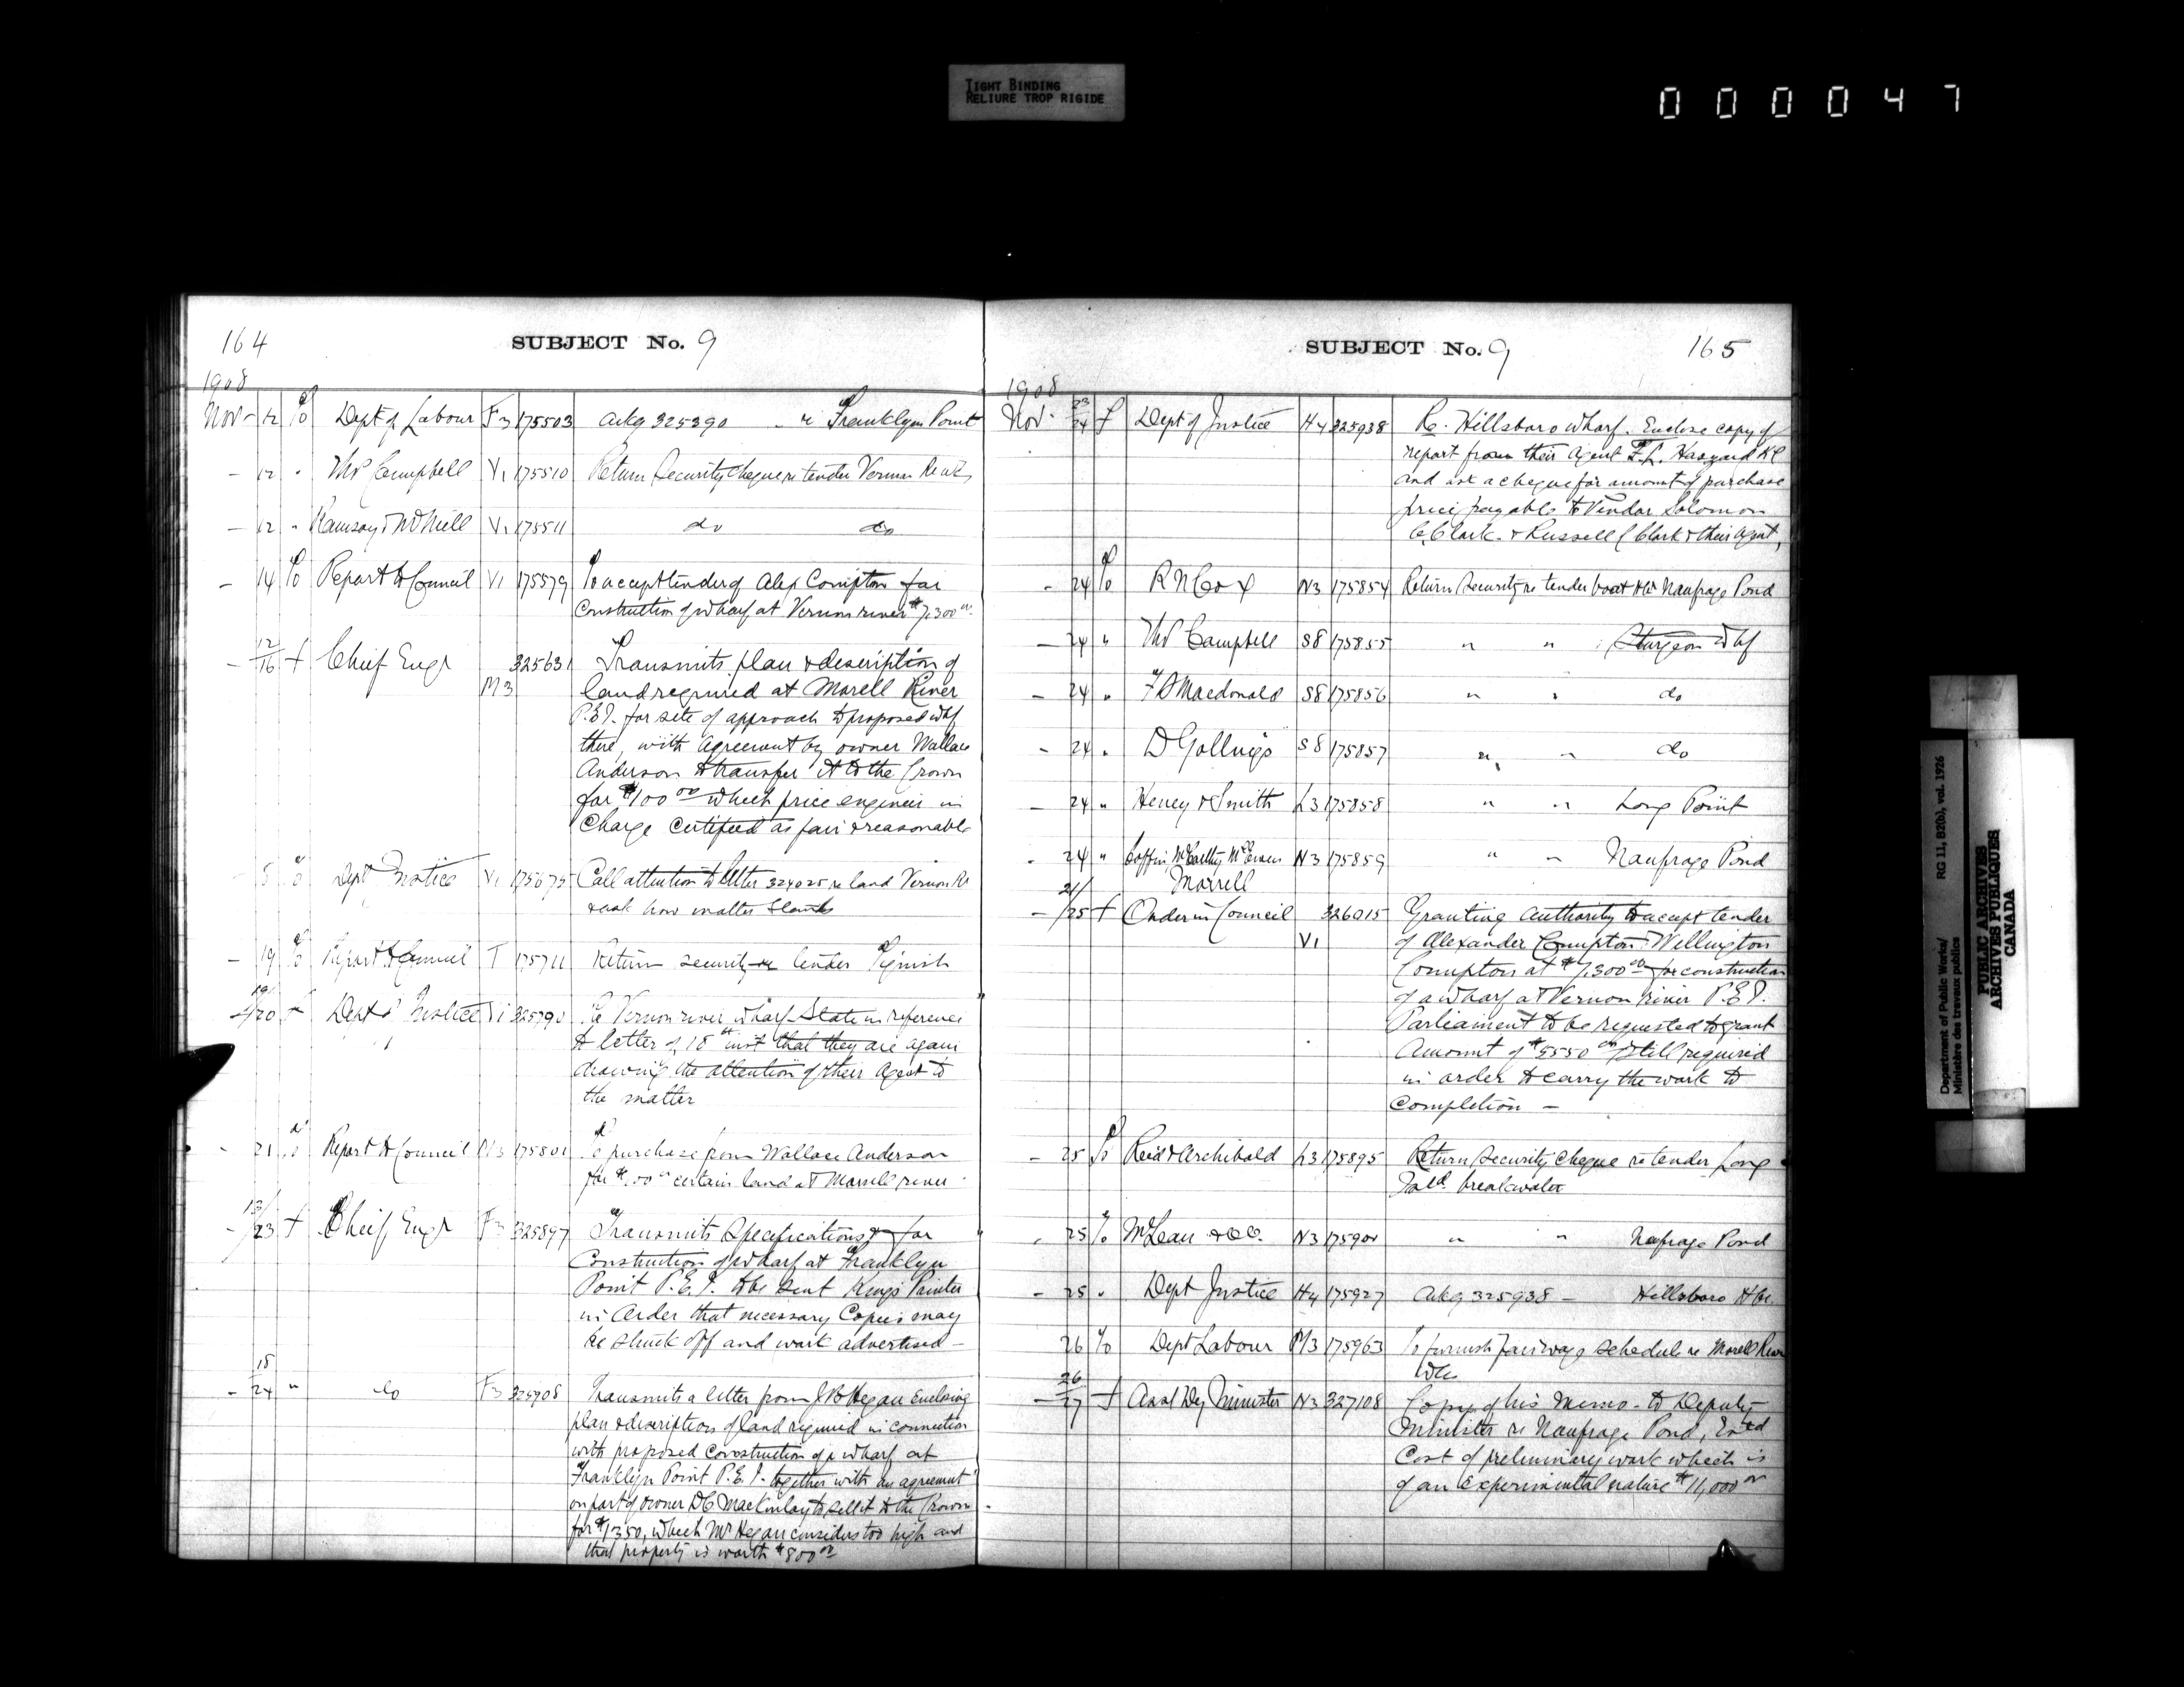 TIGHT BINDING
RELIURE TROP RIGIDE
000047
164
SUBJECT No. 9
1908
Nov - 12 To Dept of Labour F3 175503 Ackg 325390 - re Franklyn Point
- 12 " Thos Campbell V1 175510 Return Security cheque re tender Vernon
- 12 " Ramsay & McNeill V1 175511 do do
- 14 To Report to Council V1 175579 To accept tender of Alex Compton for
Construction of wharf at Vernon river $7,300 00
- 12/16 f Chief Engr 325631 Transmits plan & description of
M3 land required at Morell River
P.E.I. for site of approach to proposed whf
there, with agreement by owner Wallace
Anderson to transfer it to the Crown
for $100 00 which price engineer in
Charge Certified as fair & reasonable
Dept Justice V1 175675 Call attention to letter 324025 re land Vernon Rr
& ask how matter stands
- 19 To Report to Council T 175711 Return security re tender Tignish
- 19/20 f Dept of Justice V1 325790 Re Vernon river wharf State in reference
to letter of 18th inst that they are again
drawing the attention of their Agent to
the matter
- 21 To Report to Council M3 175801 To purchase from Wallace Anderson
for $100 00 certain land at Morell river
- 13/23 f Chief Engr F3 325897 Transmits Specifications for
Construction of wharf at Franklyn
Point P.E.I. to be sent Kings Printer
in order that necessary Copies may
be struck off and work advertised -
- 18/24 " do F3 325908 Transmits a letter from J B Hegan enclosing
plan & description of land required in connection
with proposed construction of a wharf at
Franklyn Point P.E.I. together with an agreement
on part of owner D C MacKinlay to sell it to the Crown
for $1350, which Mr Hegan considers too high and
that property is worth $800 00
SUBJECT No. 9
165
1908
Nov - 23/24 f Dept of Justice H4 325938 Re. Hillsboro wharf. Enclose copy of
report from their Agent F.L. Haszard KC
and ask a cheque for amount of purchase
price payable to Vendor Solomon
C. Clark & Russell C Clark & their agent,
- 24 To R N Cox N3 175854 Return Security re tender boat Hbr Naufrage Pond
- 24 " Thos Campbell S8 175855 " " Sturgeon Whf
- 24 " F D Macdonald S8 175856 " " do
- 24 " D Gollings S8 175857 " " do
- 24 " Heney & Smith L3 175858 " " Long Point
- 24 " Coffin McCarthy McEwen N3 175859 " " Naufrage Pond
Morrell
- 21/25 f Order in Council 326015 Granting authority to accept tender
V1 of Alexander Compton Wellington
Compton at $7,300 00 for construction
of a wharf at Vernon river P.E.I.
Parliament to be requested to grant
Amount of $5550 00 still required
in order to carry the work to
completion -
- 25 To Reid & Archibald L3 175895 Return Security cheque re tender Long
breakwater
- 25 To McLean & Co. N3 175901 " " Naufrage Pond
- 25 " Dept Justice H4 175927 Ackg 325938 - Hillsboro Hbr.
26 To Dept Labour M3 175963 To furnish fair wage schedule re Morell River
Whf
- 26/27 f Asst Dep Minister N3 327108 Copy of his Memo - to Deputy
Minister re Naufrage Pond, Estd
Cost of preliminary work which is
of an experimental nature $11,000 00
Department of Public Works/
Ministère des travaux publics
RG 11, B2(b), vol. 1926
PUBLIC ARCHIVES
ARCHIVES PUBLIQUES
CANADA